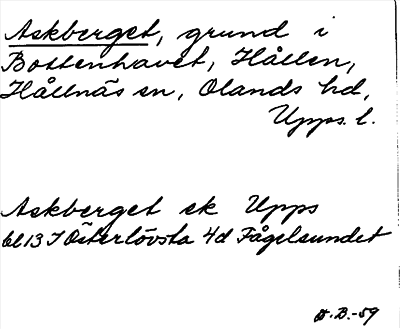 Askberget, grund i
Bottenhavet, Hållen,
Hållnäs sn, Olands hd,
Upps. l.
Askberget ek Upps
bl 13 I Österlövsta 4d Fågelsundet
B.-59